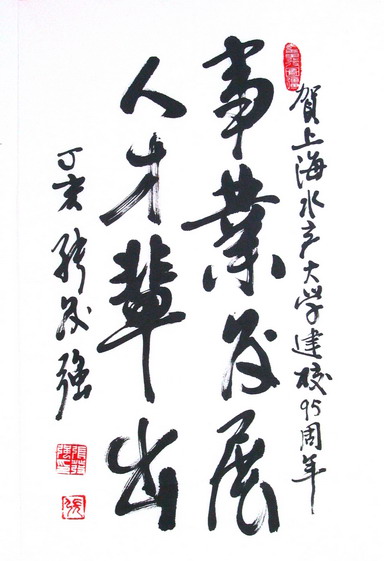 賀上海水产大学建校95周年
事業发展
人才輩出
丁亥 张茂强